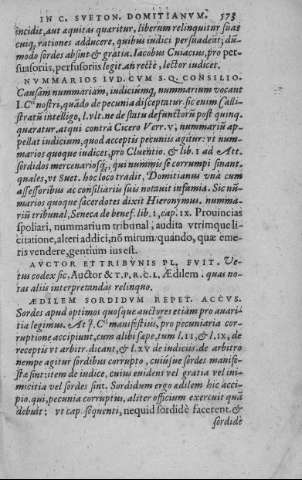 IN C. SVETON. DOMITIANVM. 573
incidit, aut æquitas quæritur, liberum relinquitur suas
cuiq; rationes adducere, quibus iudici persuadeat; dũ-
modo sordes absint & gratia. Iacobus Cuiacius, pro per
suasoriis, persusoriis legit. an rectè, lector iudicet.
NVMMARIOS IVD. CVM S. Q. CONSILIO.
Causam nummariam, iudiciũmq, nummarium vocant
I. Cti nostri, quãdo de pecunia disceptatur. sic enim Calli
stratũ intelligo, l. vlt. ne de statu defunctorũ post quinq.
quæratur. atqui contrà Cicero Verr. v, nummariũ ap-
pellat iudicium, quod acceptis pecuniis agitur: vt num-
marios quoque iudicet, pro Cluentio. & lib. I ad Att.
sordidos mercenariosq;, qui nummis se corrumpi sinant.
quales, vt Suet. hoc loco tradit, Domitianus vnà cum
assessoribus ac consiliariis suis notauit infamia. Sic nũ-
marios quoque sacerdotes dixit Hieronymus. numma-
riũ tribunal, Seneca de benef. lib. I, cap. IX. Prouincias
spoliari, nummarium tribunal, audita vtrimque li-
citatione, alteri addici, nõ mirum: quãdo, quæ eme-
ris vendere, gentium ius est.
AVCTOR ET TRIBVNIS PL. FVIT. Ve-
tus codex sic. Auctor & T.P.R.C.L. Ædilem. quas no-
tas aliis interpretandas relinquo.
ÆDILEM SORDIDVM REPET. ACCVS.
Sordes apud optimos quosque auctores etiam pro auari
tia legimus. At I. Cti manifestiùs, pro pecuniaria cor-
ruptione accipiunt, cum alibi sæpe, tum l. III, & l. IX, de
receptis vt arbitr. dicant, & l. XV de iudiciis. de arbitro
nempe agitur sordibus corrupto, cuiúsue sordes manife-
stæ sint: item de iudice, cuius euident vel gratia vel ini-
micitia vel sordes sint. Sordidum ergo ædilem hic acci-
pio, qui, pecunia corruptus, aliter officium exercuit quã
debuit: vt cap. sequenti, nequid sordidè facerent. &
sordidè